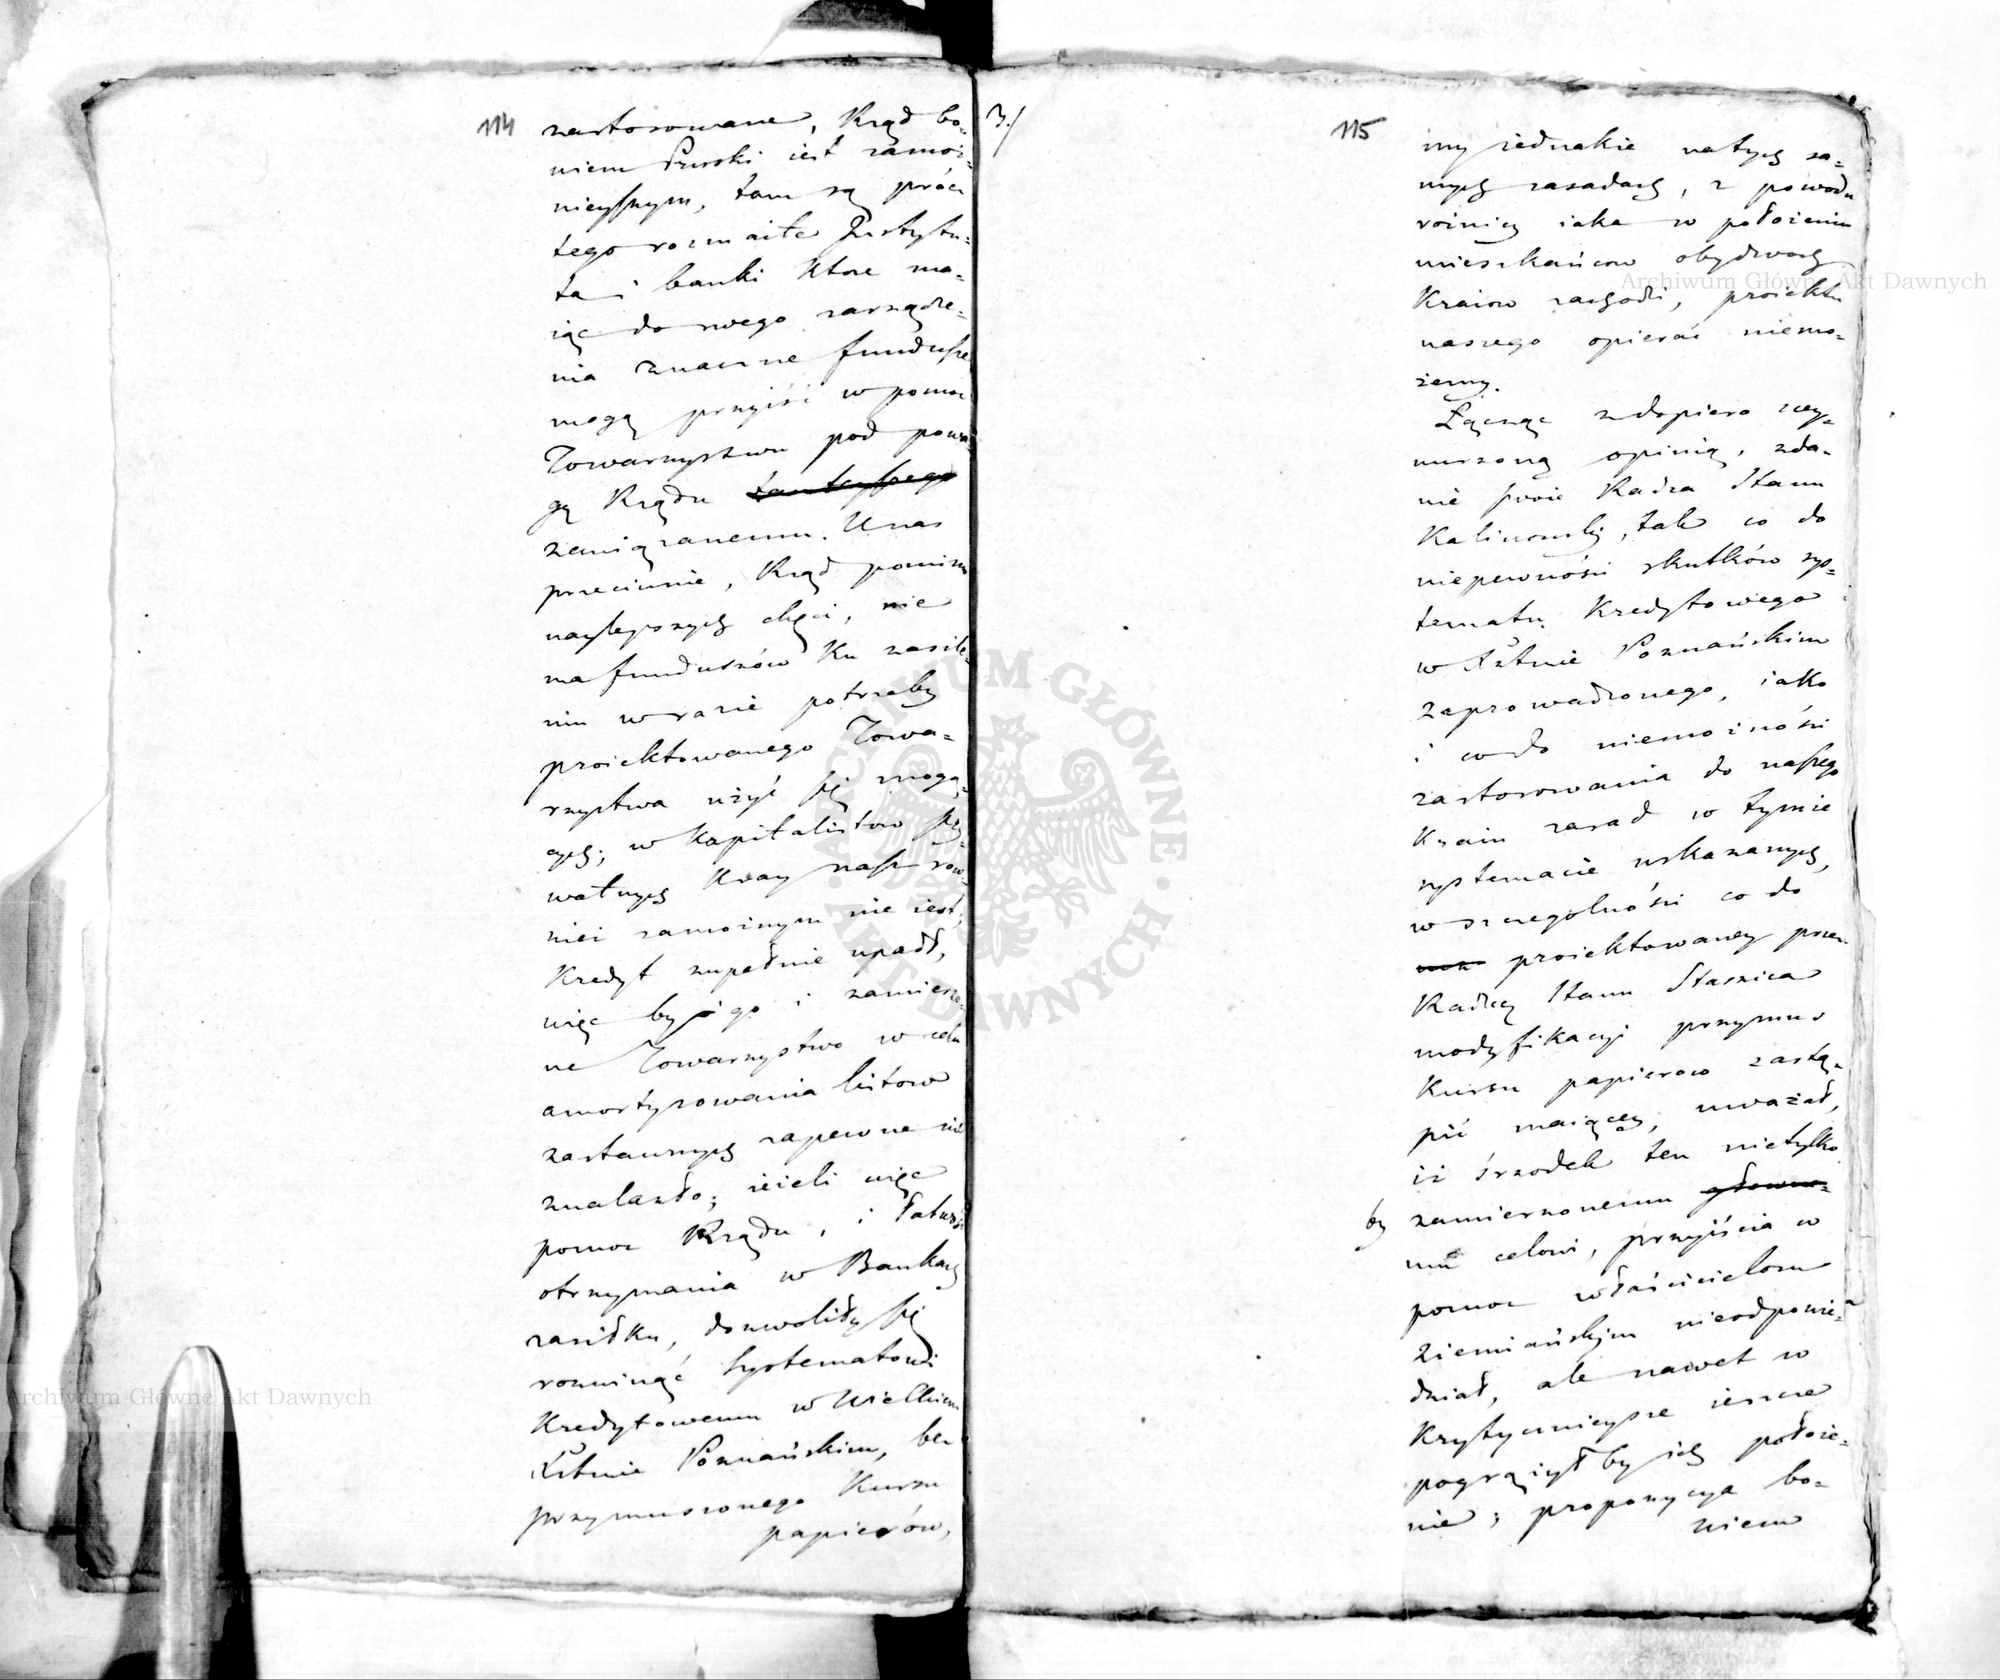 114
zastosowane, Rząd bo-
wiem Pruski iest zamoż-
nieyszym, tam są prócz
tego rozmaite Instytu-
ta i banki które ma-
iąc do swego zarządze-
nia znaczne fundusze
mogą przyiść w pomoc
Towarzystwu pod powa-
gą Rządu tamteyszego
zawiązanemu. U nas
przeciwnie, Rząd pomimo
naylepszych chęci, nie
ma funduszów ku zasile-
niu w razie potrzeby
proiektowanego Towa-
rzystwa użyć się mogą-
cych; w kapitalistow pry-
watnych Kray nasz row-
niei zamożnym nie iest,
Kredyt zupełnie upadł,
więc by go i zamierzo-
ne Towarzystwo w celu
amortyzowania listow
zastawnych zapewne nie
znalazło; ieżeli więc
pomoc Rządu, i łatwość
otrzymania w Bankach
zasiłku, dozwoliły się
rozwinąć systematowi
Kredytowemu w Wielkiem
Xstwie Poznańskim, bez
przymuszonego Kursu
papierów,
3./
115
my iednakie na tych sa-
mych zasadach, z powodu
rożnicy iaka w położeniu
mieszkańcow obydwoch
Kraiow zachodzi, proiektu
naszego opierać niemo-
żemy.
Łącząc z dopiero wy-
nurzoną opinią, zda-
nie swoie Radca Stanu
Kalinowski, tak co do
niepewności skutków sys-
tematu Kredytowego
w Xstwie Poznańskim
zaprowadzonego, iako
i co do niemożności
zastosowania do naszego
Kraiu zasad w tymże
systemacie wskazanych,
w szczególności co do
proiektowaney przez
Radcę Stanu Staszica
modyfikacyi przymus
Kursu papierow zastą-
pić maiącey, uważał,
iż śrzodek ten nietylko
by zamierzonemu główne-
mu celowi, przyiścia w
pomoc właścicielom
Ziemiańskim nieodpowie-
dział, ale nawet w
Krytycznieysze ieszcze
pogrążył by ich położe-
nie; propozycya bo-
wiem
Archiwum Główne Akt Dawnych
Archiwum Główne Akt Dawnych
ARCHIWUM GŁÓWNE AKT DAWNYCH